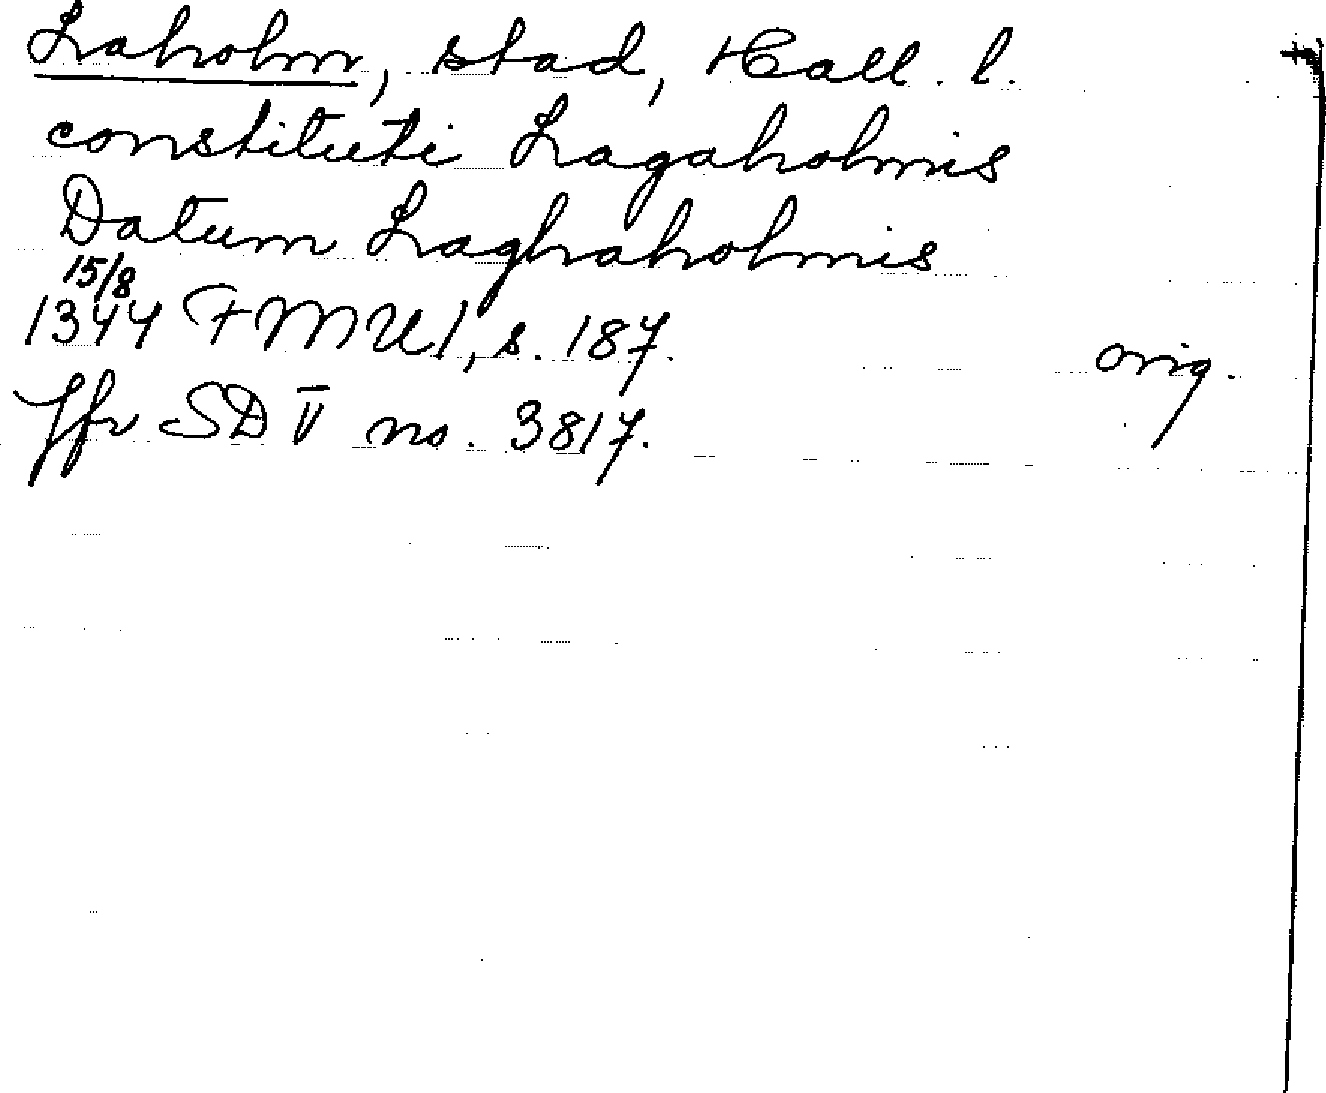 Laholm, stad, Hall. l.
constituti Lagaholmis
Datum Laghaholmis
15/8
1344 FMU 1, s. 187. orig.
Jfr SD V no. 3817.